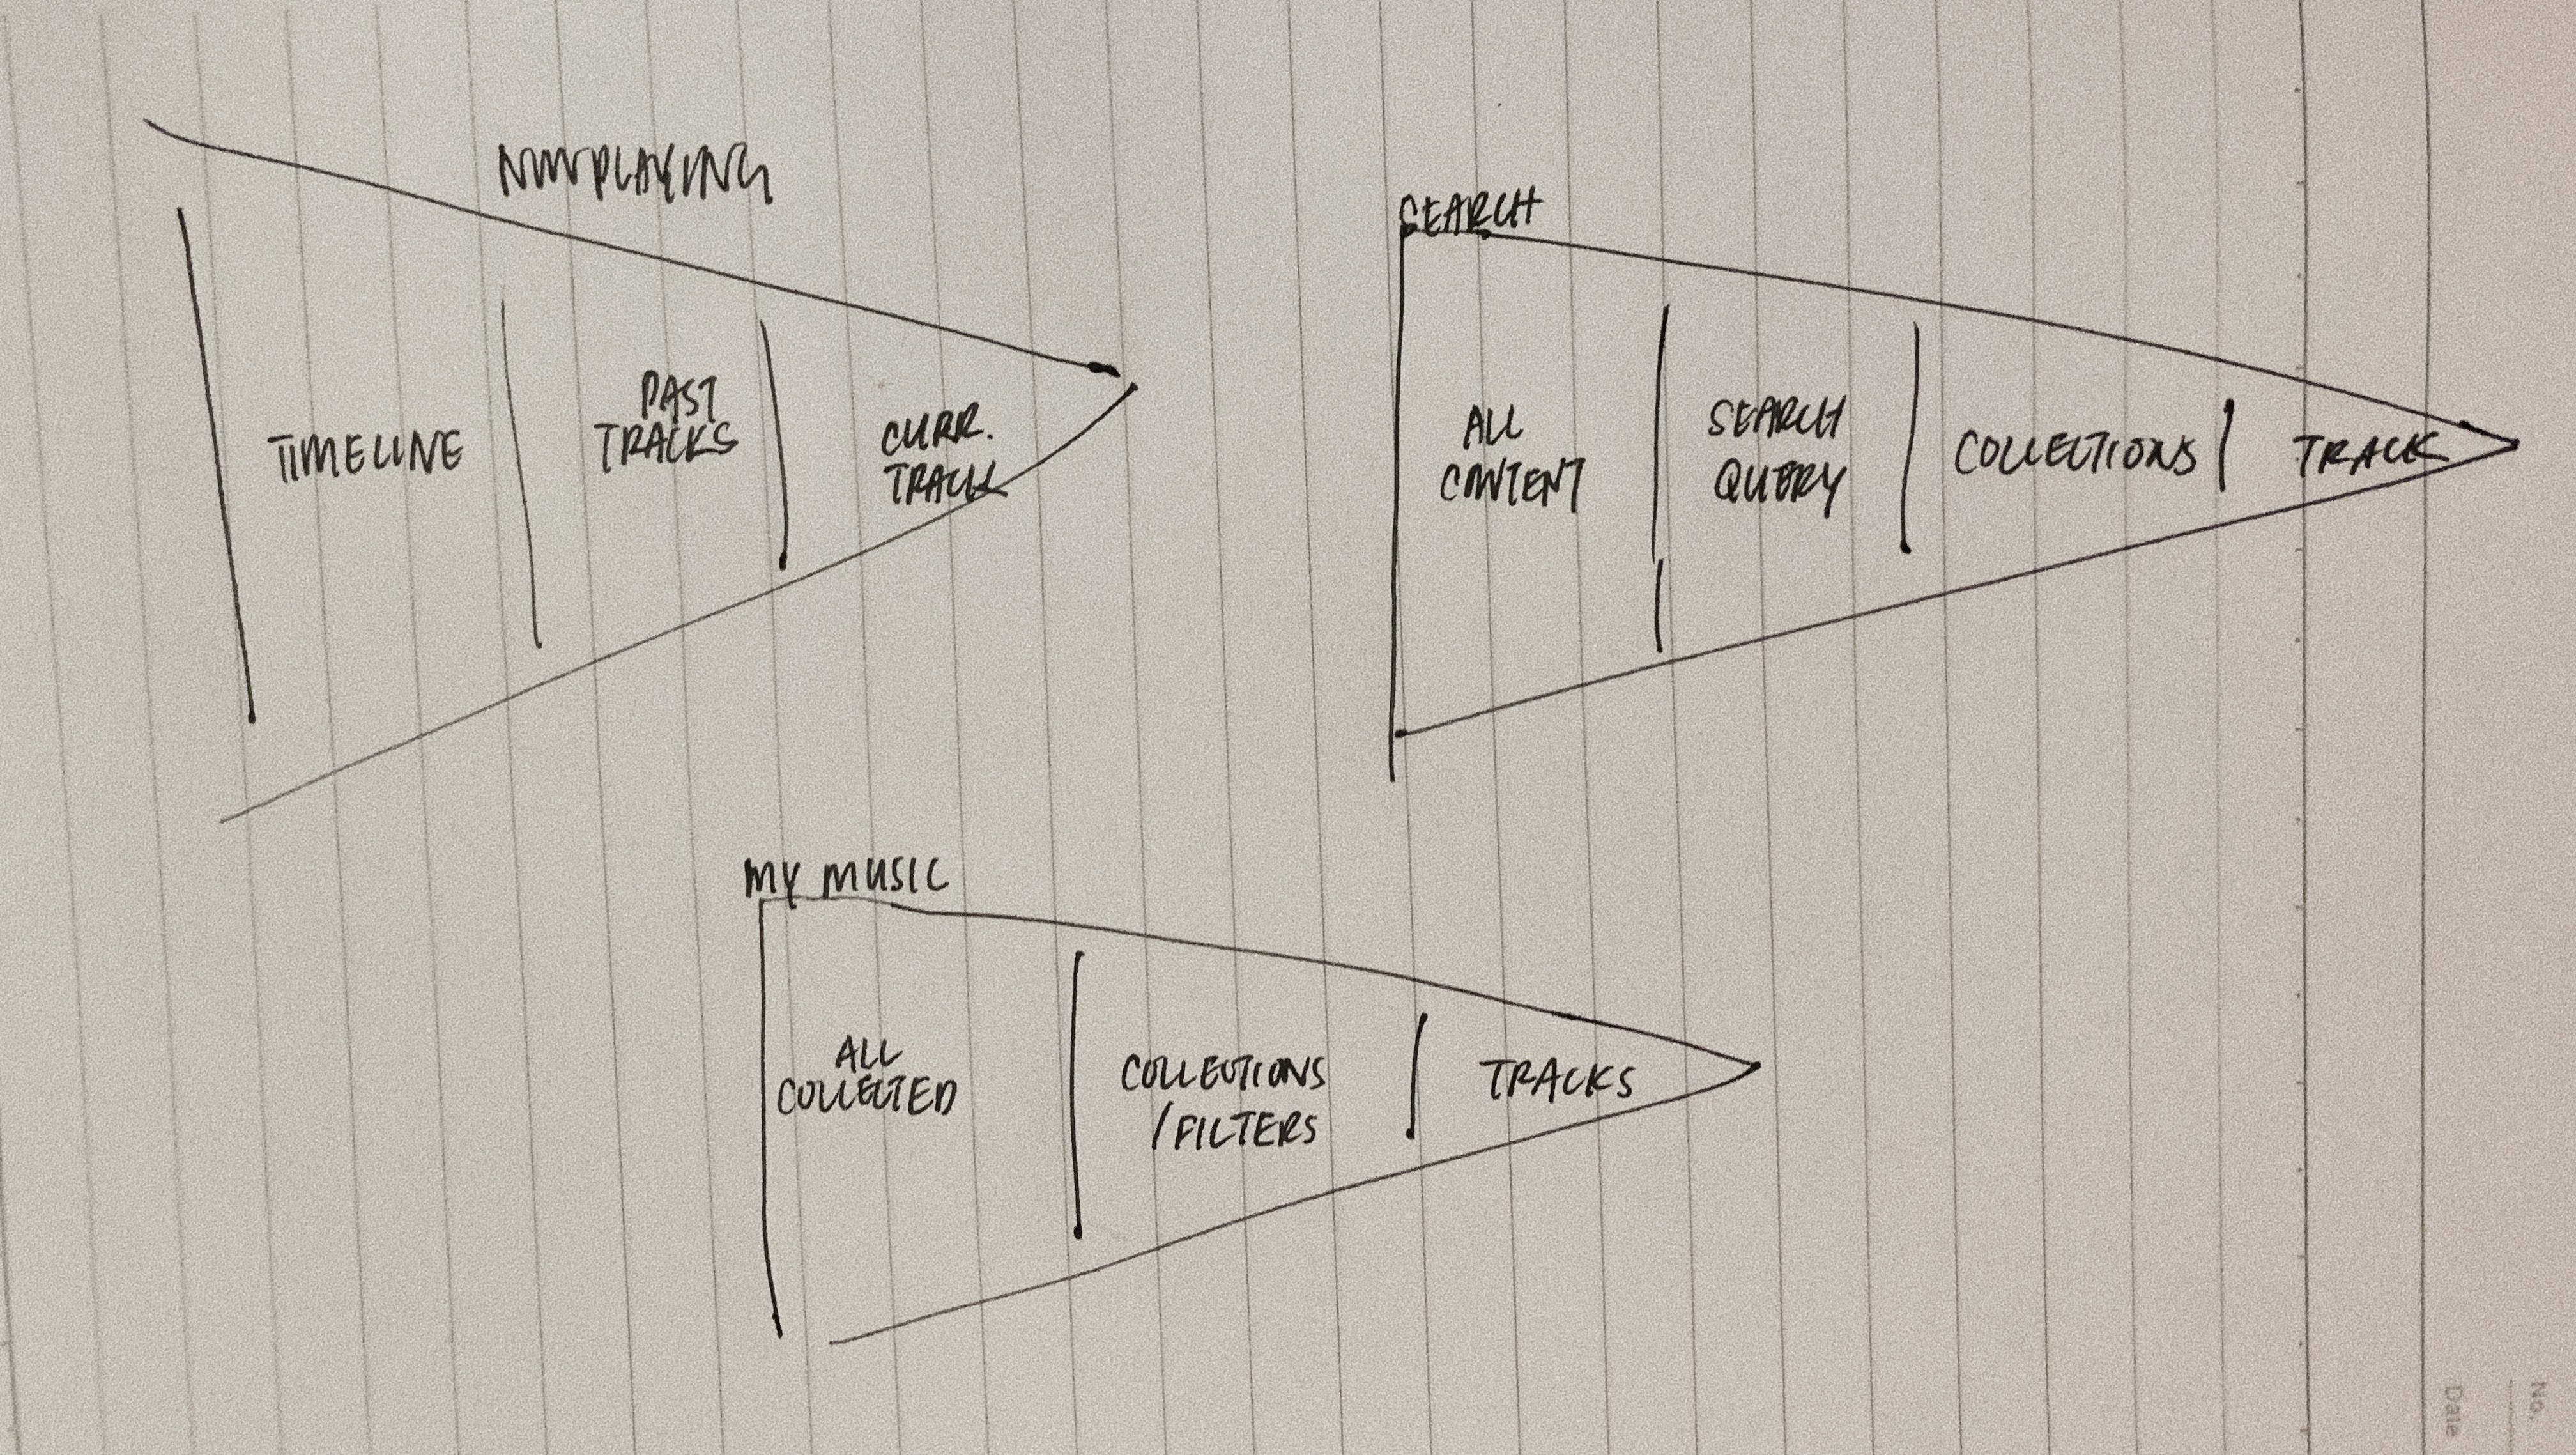 NOWPLAYING
TIMELINE
PAST
TRACKS
CURR.
TRACK
SEARCH
ALL
CONTENT
SEARCH
QUERY
COLLECTIONS
TRACK
MY MUSIC
ALL
COLLECTED
COLLECTIONS
/FILTERS
TRACKS
No.
Date